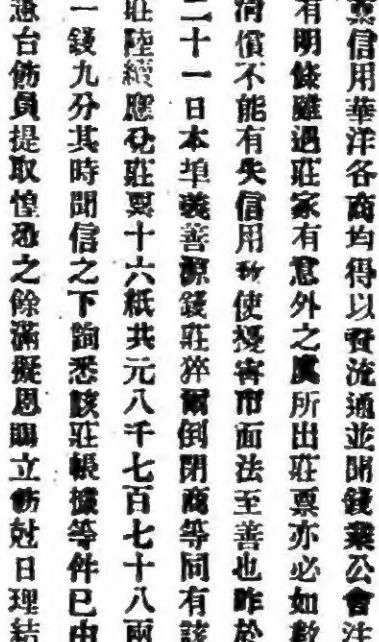 票信用華洋各商均得以資流通並開錢業公會注
有明條雖遇莊家有意外之虞所出莊票亦必如數
清償不能有失信用致使擾害市面法至善也昨於
二十一日本埠義善源錢莊猝爾倒閉商等同有該
莊陸續應兌莊票十六紙共元八千七百七十八兩
一錢九分其時聞信之下詢悉該莊帳據等件已由
憲台飭員提取惶恐之餘滿擬恩賜立飭尅日理結